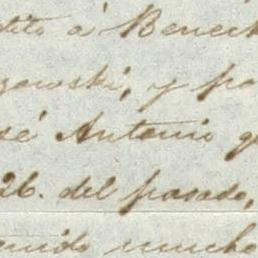 dito á Benech
zowski, y pa
sé Antonio q
26. del pasado,
enido mucho